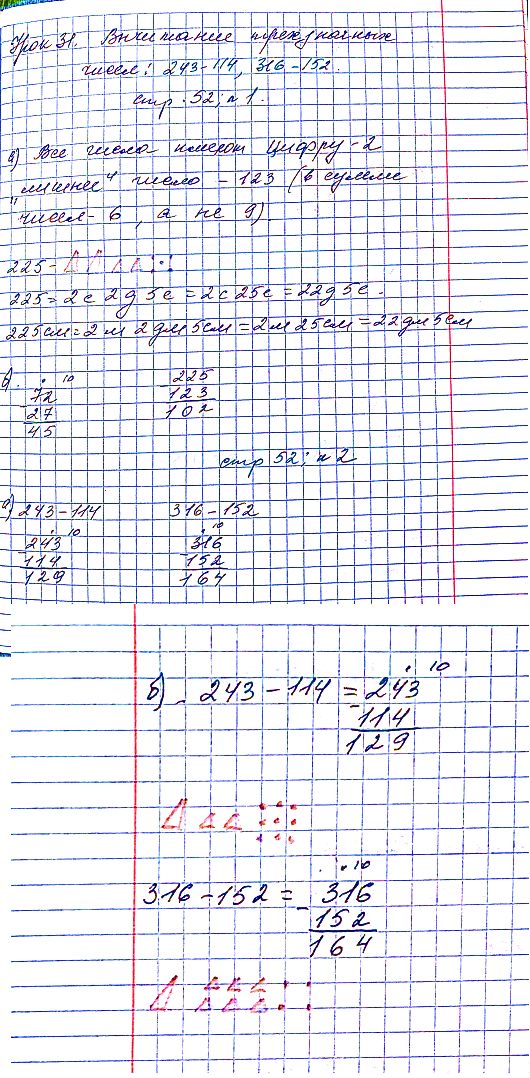 Урок 31. Вычитание трехзначных
чисел: 243-114, 316-152.
стр. 52; №1.
а) Все числа имеют цифру-2
"лишнее" число - 123 (в сумме
чисел - 6, а не 9).
225 -
225 = 2с 2д 5е = 2с 25е = 22д 5е.
225см = 2м 2дм 5см = 2м 25см = 22дм 5см
в) . 10
- 72 - 225
27 123
45 102
стр 52; №2
а) 243-114 316-152
. 10 . 10
- 243 - 316
114 152
129 164
. 10
б) - 243 - 114 = - 243
114
129
. 10
316 - 152 = - 316
152
164